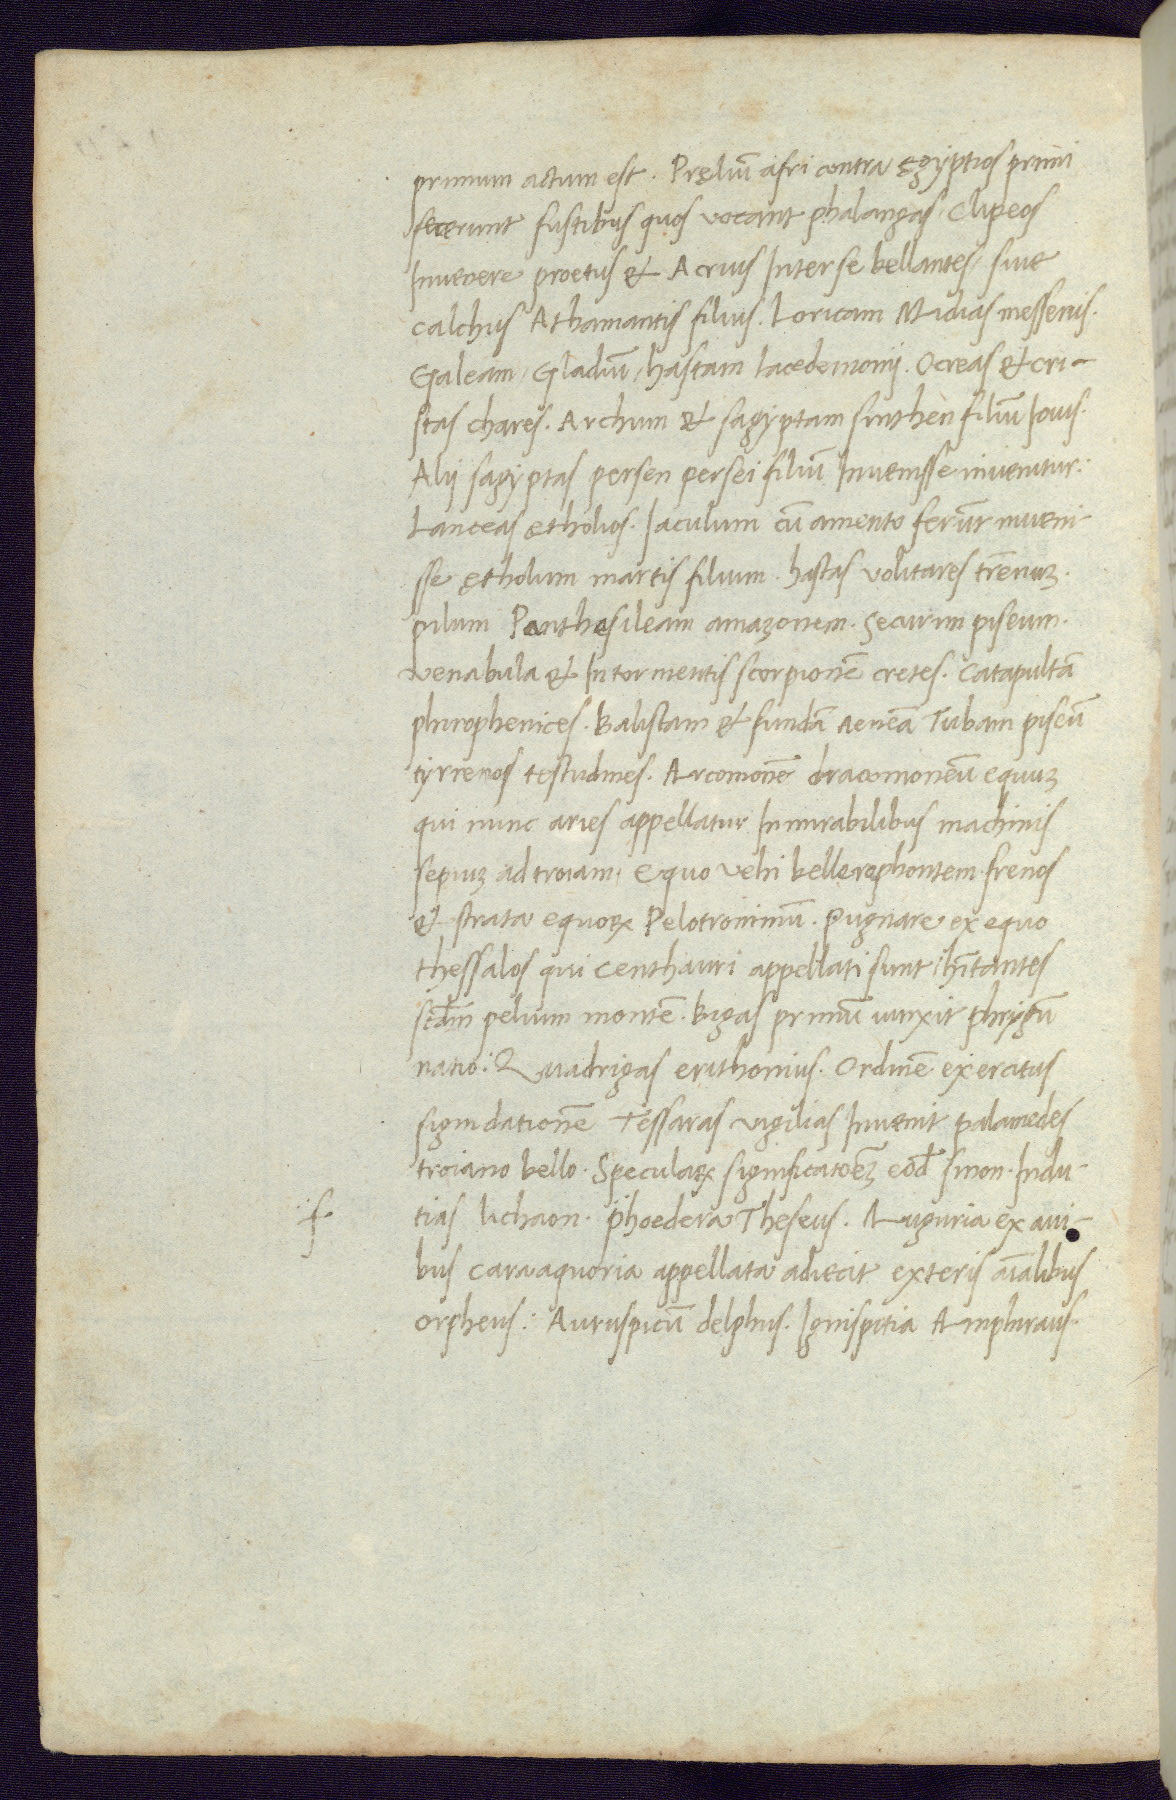 primum actum est. Pręliū afri contra ęgÿptios primi
fecerunt fustibus quos vocant phalangas, Clipeos
Invenere proetus & Acrius Inter se bellantes, sive
calchus Athamantis filius. Loricam Midias messenis.
Galeam, Gladiū, hastam Lacedemonij. Ocreas & cri-
stas chares. Archum & sagÿptam sinthen filiū Iovis.
Alij sagÿptas persen persei filiū Invenisse invenitur:
Lanceas ętholios. Iaculum cū amento ferūt inveni-
sse ętholum martis filium. hastas volitares trēnuz.
pilum Panthasileam amazonem. Securim piseum.
venabula & In tormentis scorpionē cretes. Catapultā
phirophenices. Balistam & fundā aeneā Tubam piseū
tÿrrenos testudines. Arcomonē dracomoneū equuz
qui nunc aries appellatur In mirabilibus machinis
sepiuz ad troiam, Equo vehi bellerophontem. frenos
& strata equoꝝ Pelotronimū. Pugnare ex equo
thessalos qui Centhauri appellati sunt, hītantes
scdm̄ pelium montē. Bigas primū iunxit phrigū
natio: Quadrigas erithonius. Ordinē exercitus
signi dationē Tessaras vigilias Invenit palamedes
troiano bello. Speculaꝝ significatoēz eod̄ sinon. Indu-
tias lichaon. phoedera Theseus. Auguria ex avi-
bus cara aquoria appellata adiecit exteris aīalibus
orpheus: Auruspicū delphus. Ignispitia Amphiraus.
f